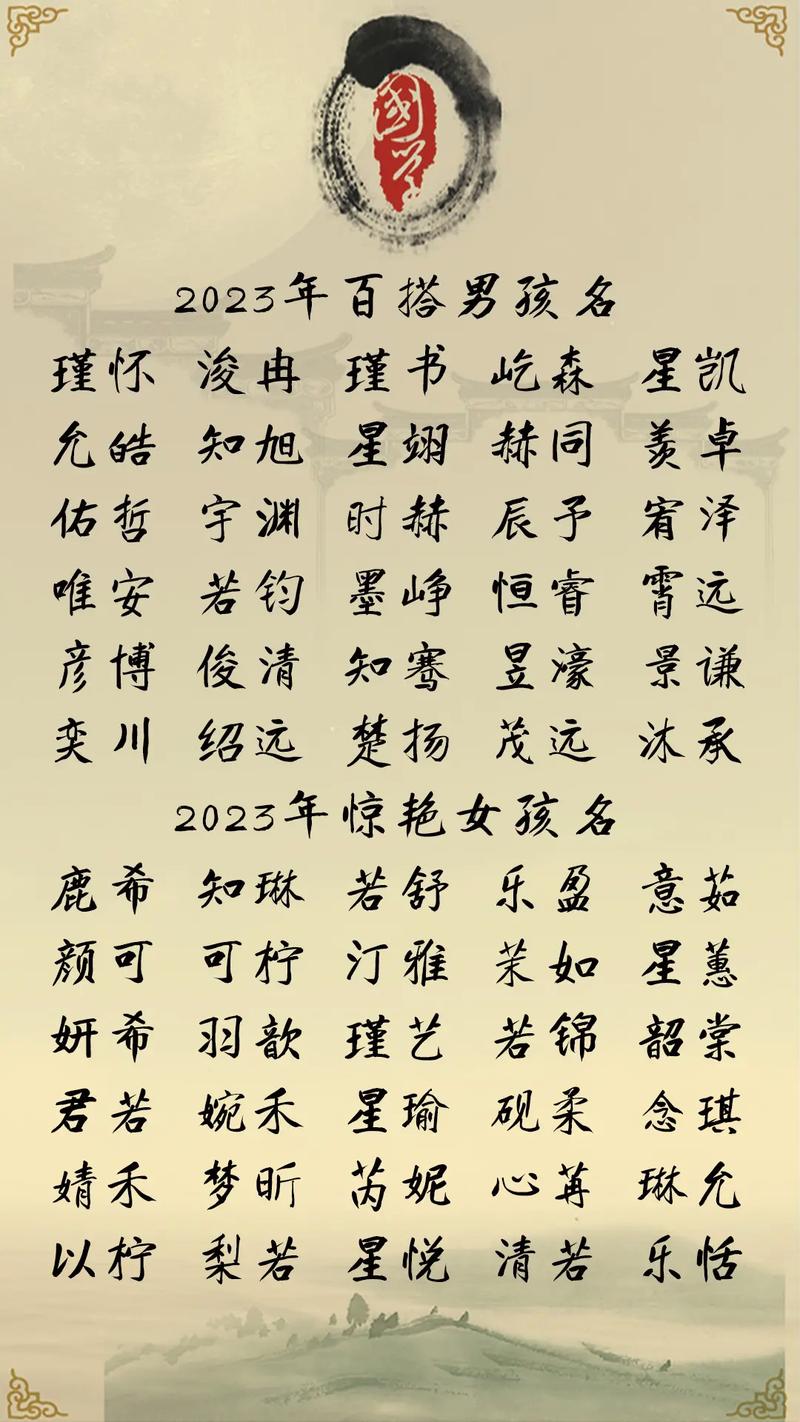 國学
2023年百搭男孩名
瑾怀 浚冉 瑾书 屹森 星凯
允皓 知旭 星翊 赫同 羡卓
佑哲 宇渊 时赫 辰予 宥泽
唯安 若钧 墨峥 恒睿 霄远
彦博 俊清 知骞 昱濠 景谦
奕川 绍远 楚扬 茂远 沐承
2023年惊艳女孩名
鹿希 知琳 若舒 乐盈 意茹
颜可 可柠 汀雅 茉如 星蕙
妍希 羽歆 瑾艺 若锦 韶棠
君若 婉禾 星瑜 砚柔 念琪
婧禾 梦昕 芮妮 心苒 琳允
以柠 梨若 星悦 清若 乐恬